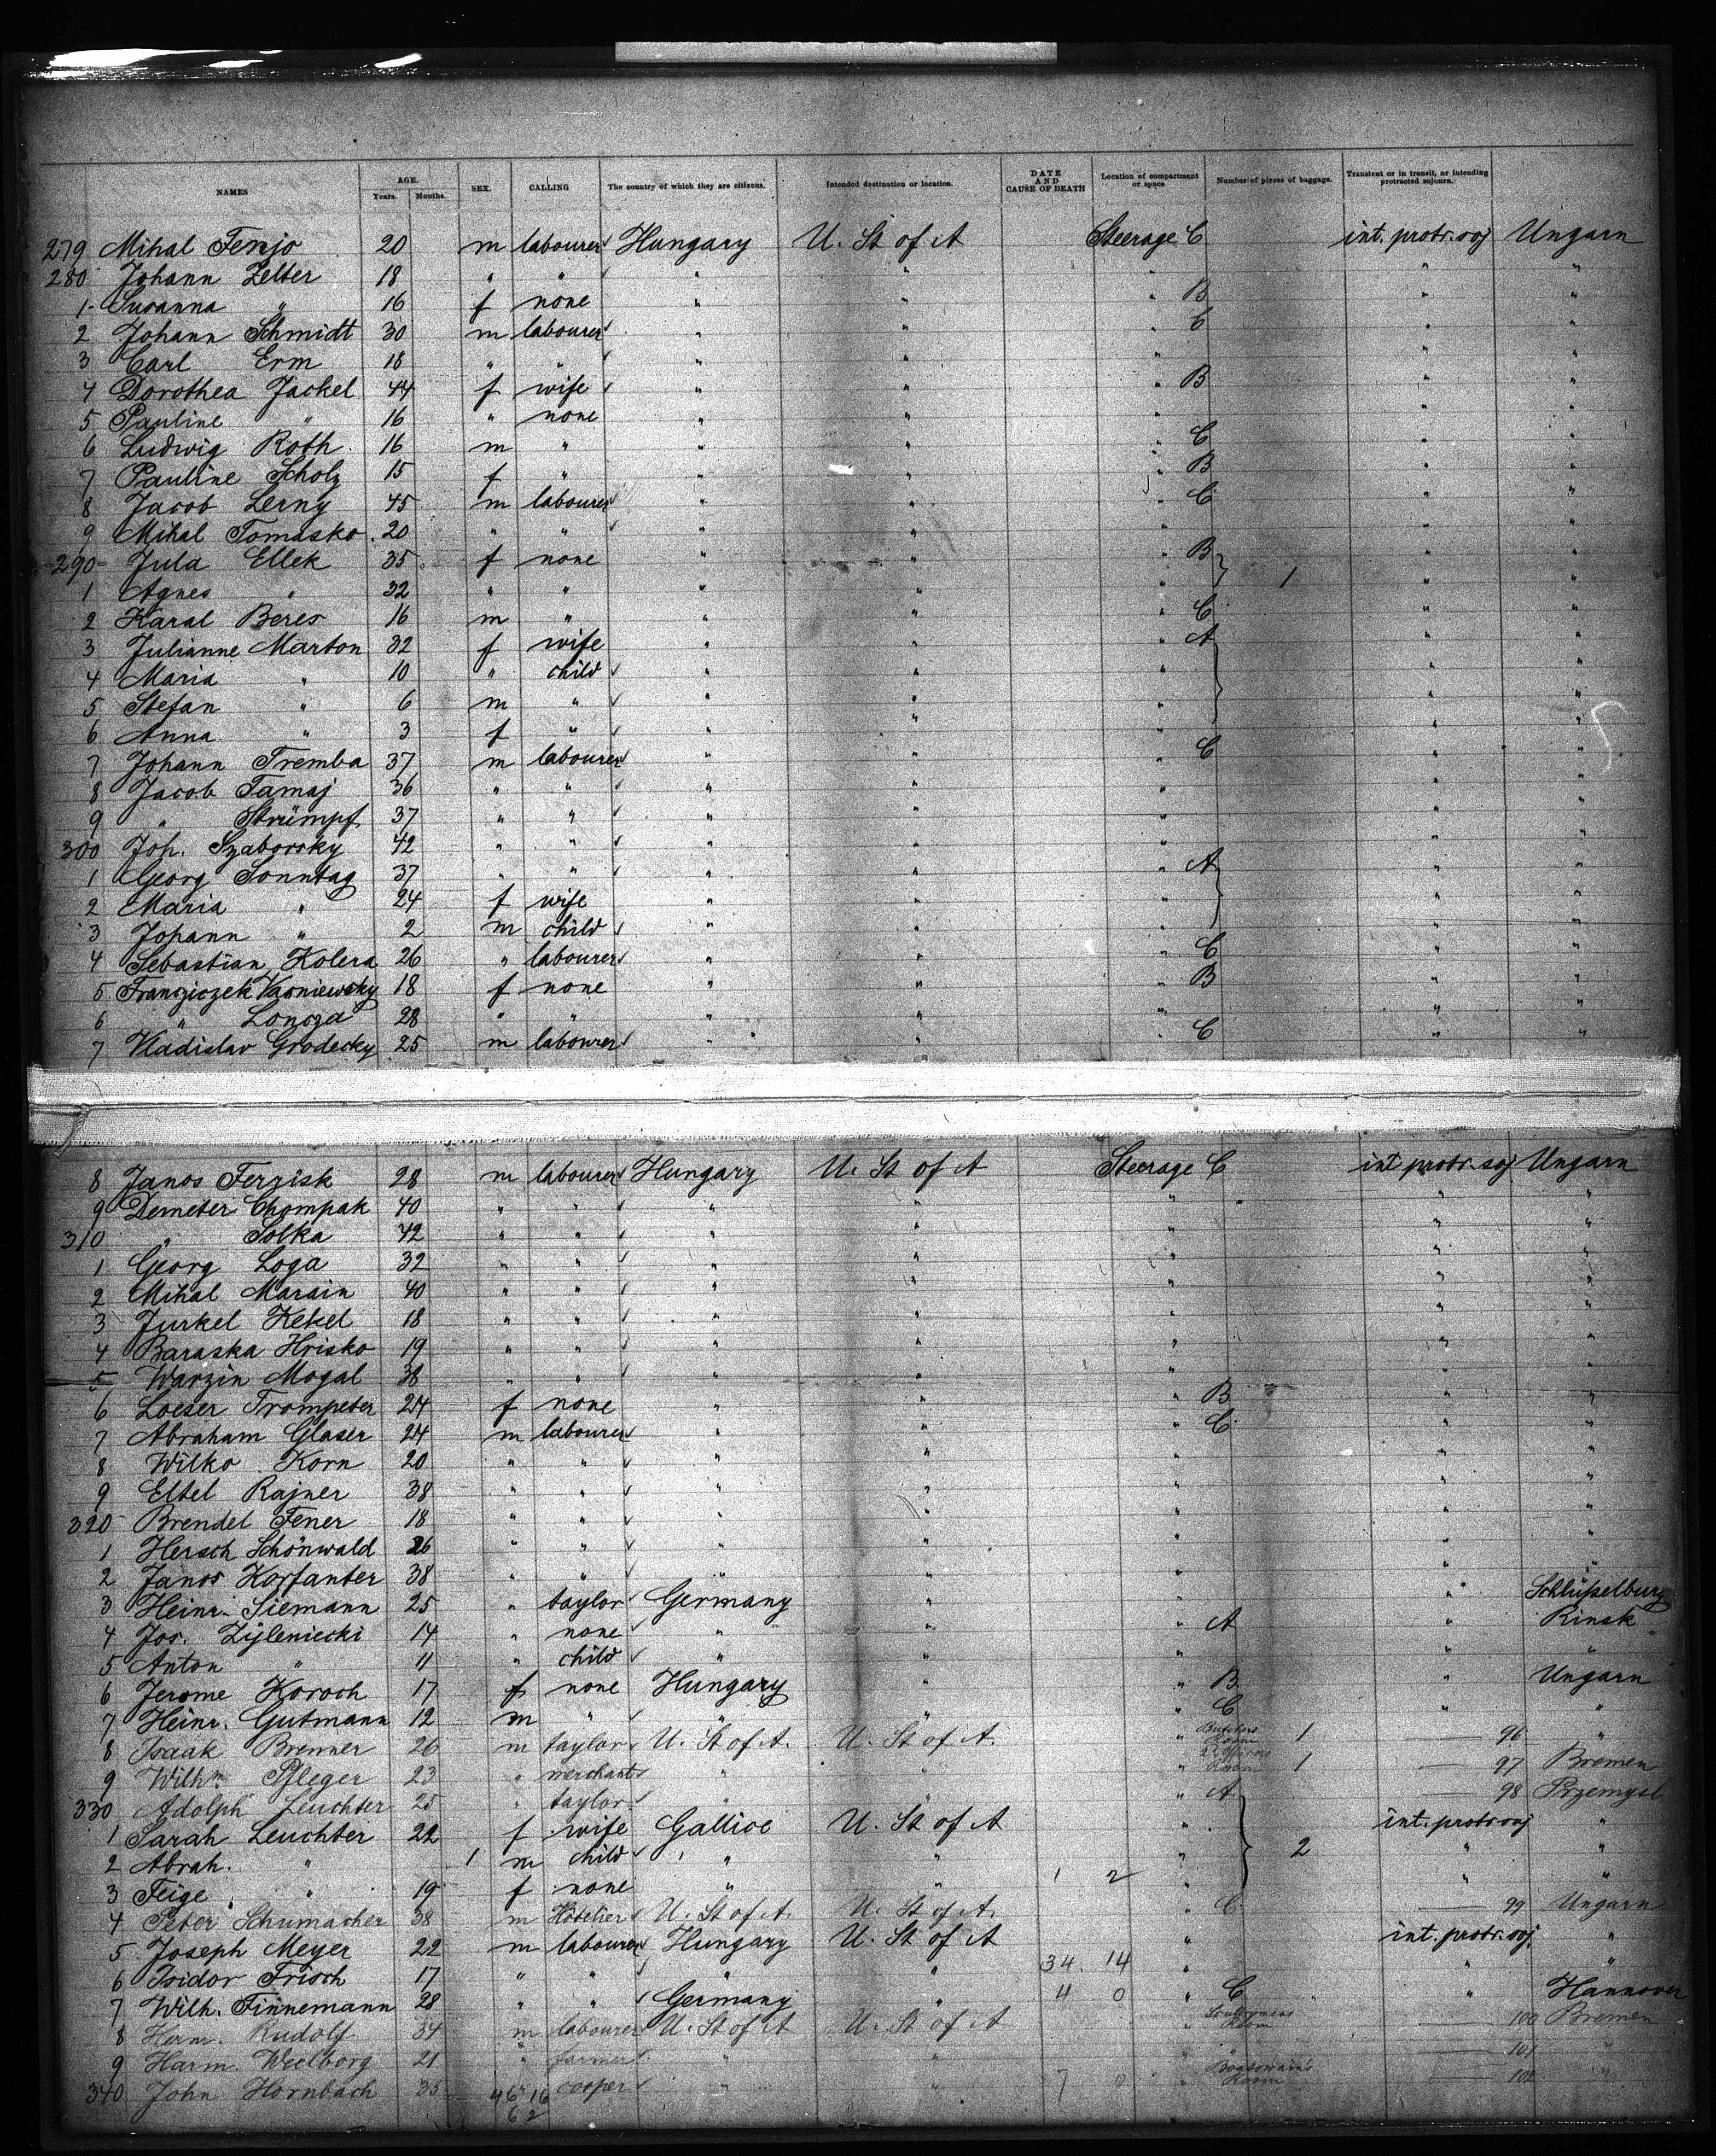 NAMES AGE. Years. Months. SEX. CALLING The country of which they are citizens. Intended destination or location. DATE AND CAUSE OF DEATH Location of compartment or space Number of pieces of baggage. Transient or in transit, or intending protracted sojourn.
279 Mihal Fenjo 20 m labourer Hungary U. St of A Steerage C int. protr. soj Ungarn
280 Johann Zelter 18 " " " " " " "
1 Susanna " 16 f none " " " B " "
2 Johann Schmidt 30 m labourer " " " C " "
3 Carl Erm 18 " " " " " " "
4 Dorothea Jackel 44 f wife " " " B " "
5 Pauline " 16 " none " " " " "
6 Ludwig Roth 16 m " " " " C " "
7 Pauline Scholz 15 f " " " " B " "
8 Jacob Lerny 45 m labourer " " " C " "
9 Mihal Tomasko 20 " " " " " " "
290 Jula Ellek 35 f none " " " B " "
1 Agnes " 32 " " " " " 1 " "
2 Karal Beres 16 m " " " " C " "
3 Julianne Marton 32 f wife " " " A " "
4 Maria " 10 " child " " " " "
5 Stefan " 6 m " " " " " "
6 Anna " 3 f " " " " " "
7 Johann Tremba 37 m labourer " " " C " "
8 Jacob Tamaj 36 " " " " " " "
9 " Strümpf 37 " " " " " " "
300 Joh. Szaborsky 42 " " " " " " "
1 Georg Sonntag 37 " " " " " A " "
2 Maria " 24 f wife " " " " "
3 Johann " 2 m child " " " " "
4 Sebastian Kolera 26 " labourer " " " C " "
5 Franziczek Wasniewsky 18 f none " " " B " "
6 " Lonoza 28 " " " " " " "
7 Wladislav Grodecky 25 m labourer " " " C " "
8 Janos Ferzisk 28 m labourer Hungary U. St of A Steerage C int protr. soj Ungarn
9 Demeter Chompak 40 " " " " " " "
310 " Solka 42 " " " " " " "
1 Georg Loga 32 " " " " " " "
2 Mihal Marsin 40 " " " " " " "
3 Jurkel Kekel 18 " " " " " " "
4 Baraska Hrisko 19 " " " " " " "
5 Warzin Mogal 38 " " " " " " "
6 Loeser Trompeter 24 f none " " " B " "
7 Abraham Glaser 24 m labourer " " " C " "
8 Wilko Korn 20 " " " " " " "
9 Ettel Rajner 38 " " " " " " "
320 Brendel Fener 18 " " " " " " "
1 Hersch Schönwald 26 " " " " " " "
2 Janos Korfanter 38 " " " " " " "
3 Heinr. Siemann 25 " taylor Germany " " " Schlüsselburg
4 Jos. Zijleniecki 14 " none " " " A " Rinsk
5 Anton " 11 " child " " " " "
6 Jerome Koroch 17 f none Hungary " " B " Ungarn
7 Heinr. Gutmann 12 m " " " " C " "
8 Isaak Brenner 26 m taylor U. St of A. U. St of A. " Butchers Room 1 96 "
9 Wilhm Pfleger 23 " merchant " " " Room 1 97 Bremen
330 Adolph Leuchter 25 " taylor " " " A 98 Przemysl
1 Sarah Leuchter 22 f wife Gallice U. St of A " int. protr soj "
2 Abrah. " 1 m child " " " 2 " "
3 Feige " 19 f none " " 1 2 " " "
4 Peter Schumacher 38 m Hotelier U. St of A. U. St of A. " C 99 Ungarn
5 Joseph Meyer 22 m labourer Hungary U. St of A " int. protr. soj. "
6 Isidor Frisch 17 " " " " 34 14 " " "
7 Wilh. Finnemann 28 " " Germany " 4 0 " C " Hannover
8 Herm. Rudolf 34 m labourer U. St of A U. St of A " Room 100 Bremen
9 Harm. Weelborg 21 " farmer " " " 101 "
340 John Hornbach 35 " cooper " " 7 0 " Boatswain's Room 102 "
46 16
6 2